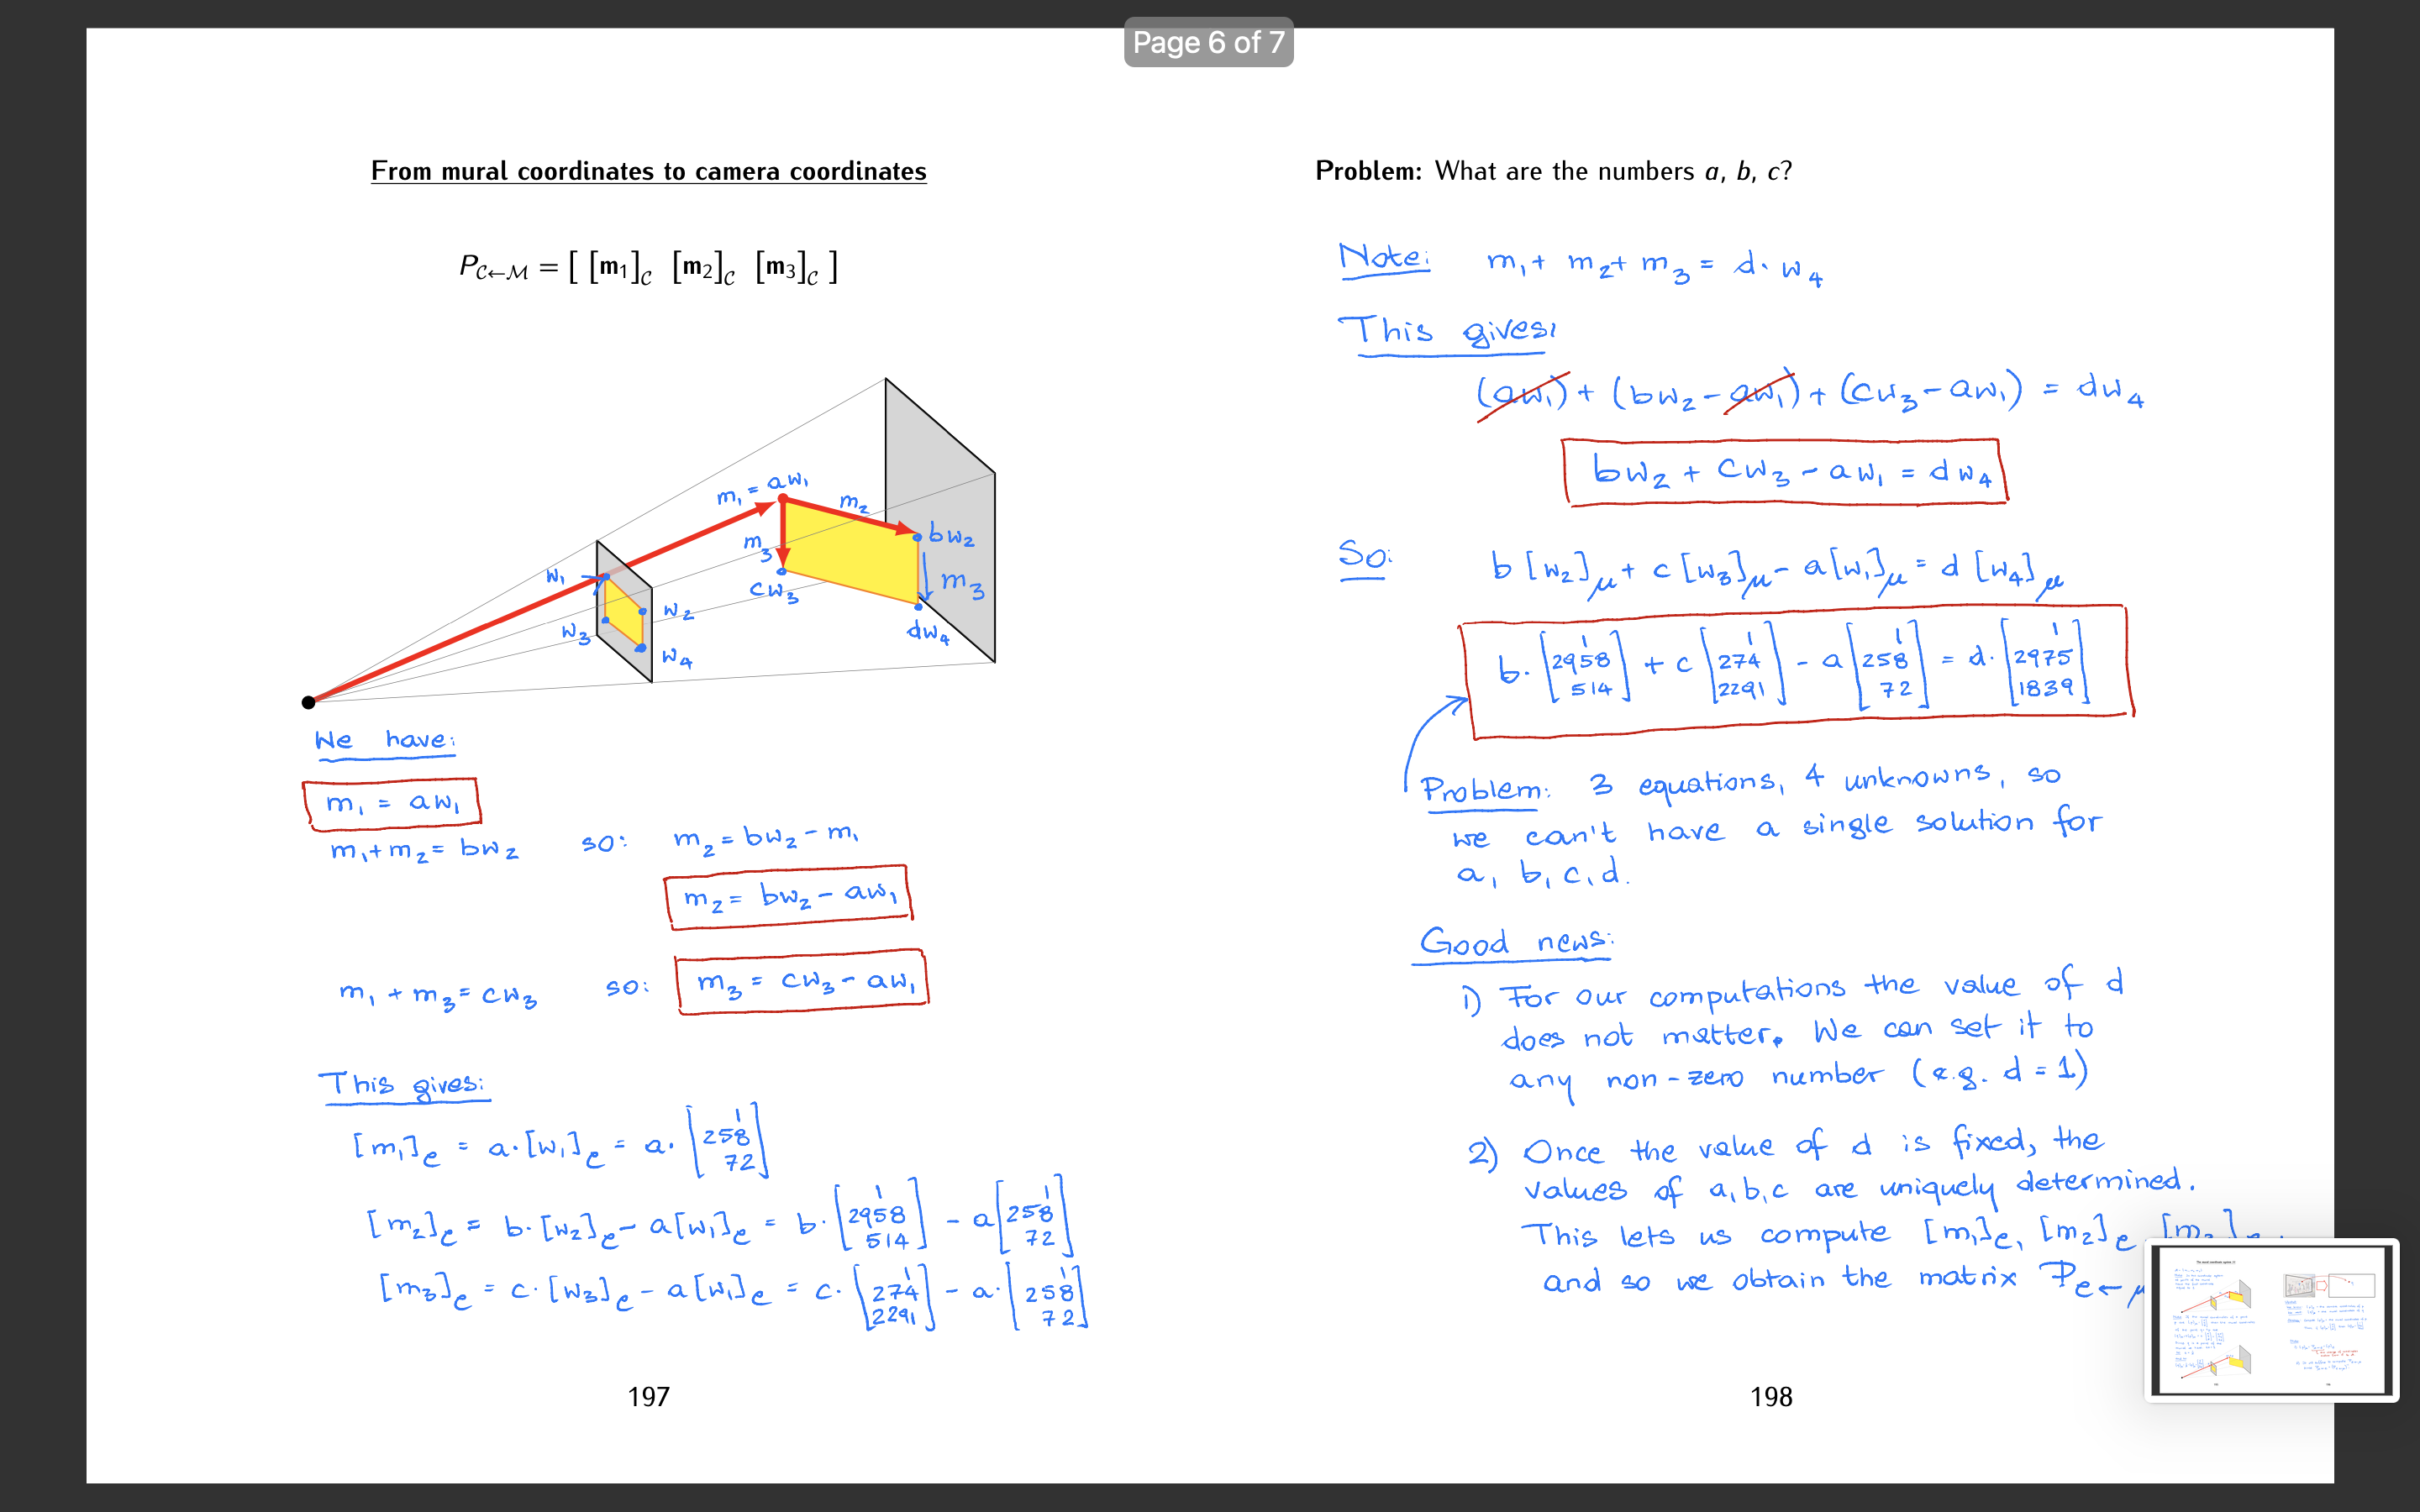 Page 6 of 7
From mural coordinates to camera coordinates
P_{C←M} = [ [m₁]_C [m₂]_C [m₃]_C ]
m₁ = aw₁
m₂
bw₂
m₃
m₃
cw₃
dw₄
w₁
w₂
w₃
w₄
We have:
m₁ = aw₁
m₁+m₂= bw₂ so: m₂= bw₂ - m₁
m₂= bw₂ - aw₁
m₁ + m₃= cw₃ so: m₃ = cw₃ - aw₁
This gives:
[m₁]_C = a·[w₁]_C = a· [1 258 72]
[m₂]_C = b·[w₂]_C - a[w₁]_C = b· [1 2958 514] - a [1 258 72]
[m₃]_C = c·[w₃]_C - a[w₁]_C = c· [1 274 2291] - a· [1 258 72]
197
Problem: What are the numbers a, b, c?
Note: m₁+ m₂+ m₃ = d· w₄
This gives:
(aw₁) + (bw₂ - aw₁) + (cw₃ - aw₁) = dw₄
bw₂ + cw₃ - aw₁ = dw₄
So: b [w₂]_M + c [w₃]_M - a[w₁]_M = d [w₄]_M
b· [1 2958 514] + c [1 274 2291] - a [1 258 72] = d· [1 2975 1839]
Problem: 3 equations, 4 unknowns, so
we can't have a single solution for
a, b, c, d.
Good news:
1) For our computations the value of d
does not matter. We can set it to
any non-zero number (e.g. d = 1)
2) Once the value of d is fixed, the
values of a, b, c are uniquely determined.
This lets us compute [m₁]_C, [m₂]_C, [m₃]_C
and so we obtain the matrix P_{C←M}
198